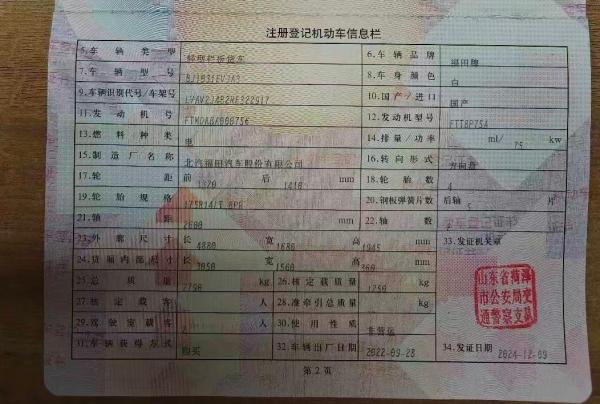 注册登记机动车信息栏
5.车辆类型 轻型栏板货车 6.车辆品牌 福田牌
7.车辆型号 8.车身颜色 白
9.车辆识别代号/车架号 10.国产/进口 国产
11.发动机号 12.发动机型号 FTTBP75A
13.燃料种类 电 14.排量/功率 ml/ 75 kw
15.制造厂名称 北汽福田汽车股份有限公司 16.转向形式 方向盘
17.轮距 前 1370 后 1410 mm 18.轮胎数 4
19.轮胎规格 175R14LT 8PR 20.钢板弹簧片数 后轴 5 片
21.轴距 2600 mm 22.轴数 2
23.外廓尺寸 长 4880 宽 1680 高 1945 mm 33.发证机关章
24.货厢内部尺寸 长 3050 宽 1560 高 360 mm
25.总质量 2790 kg 26.核定载质量 1250 kg
27.核定载客 人 28.准牵引总质量 kg
29.驾驶室载客 人 30.使用性质 非营运
31.车辆获得方式 购买 32.车辆出厂日期 2022-09-28 34.发证日期 2024-12-09
山东省菏泽
市公安局交
通警察支队
第2页